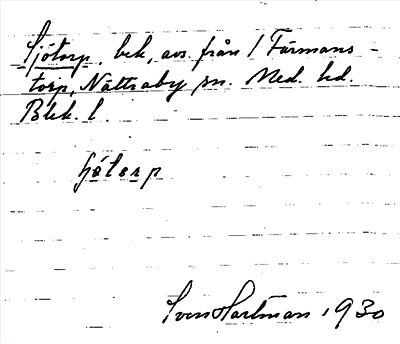 Sjötorp, bek, avs. från 1 Färmans-
torp, Nättraby sn. Med. hd.
Blek. l.
ʃó̱to̱rp
Sven Hartman 1930